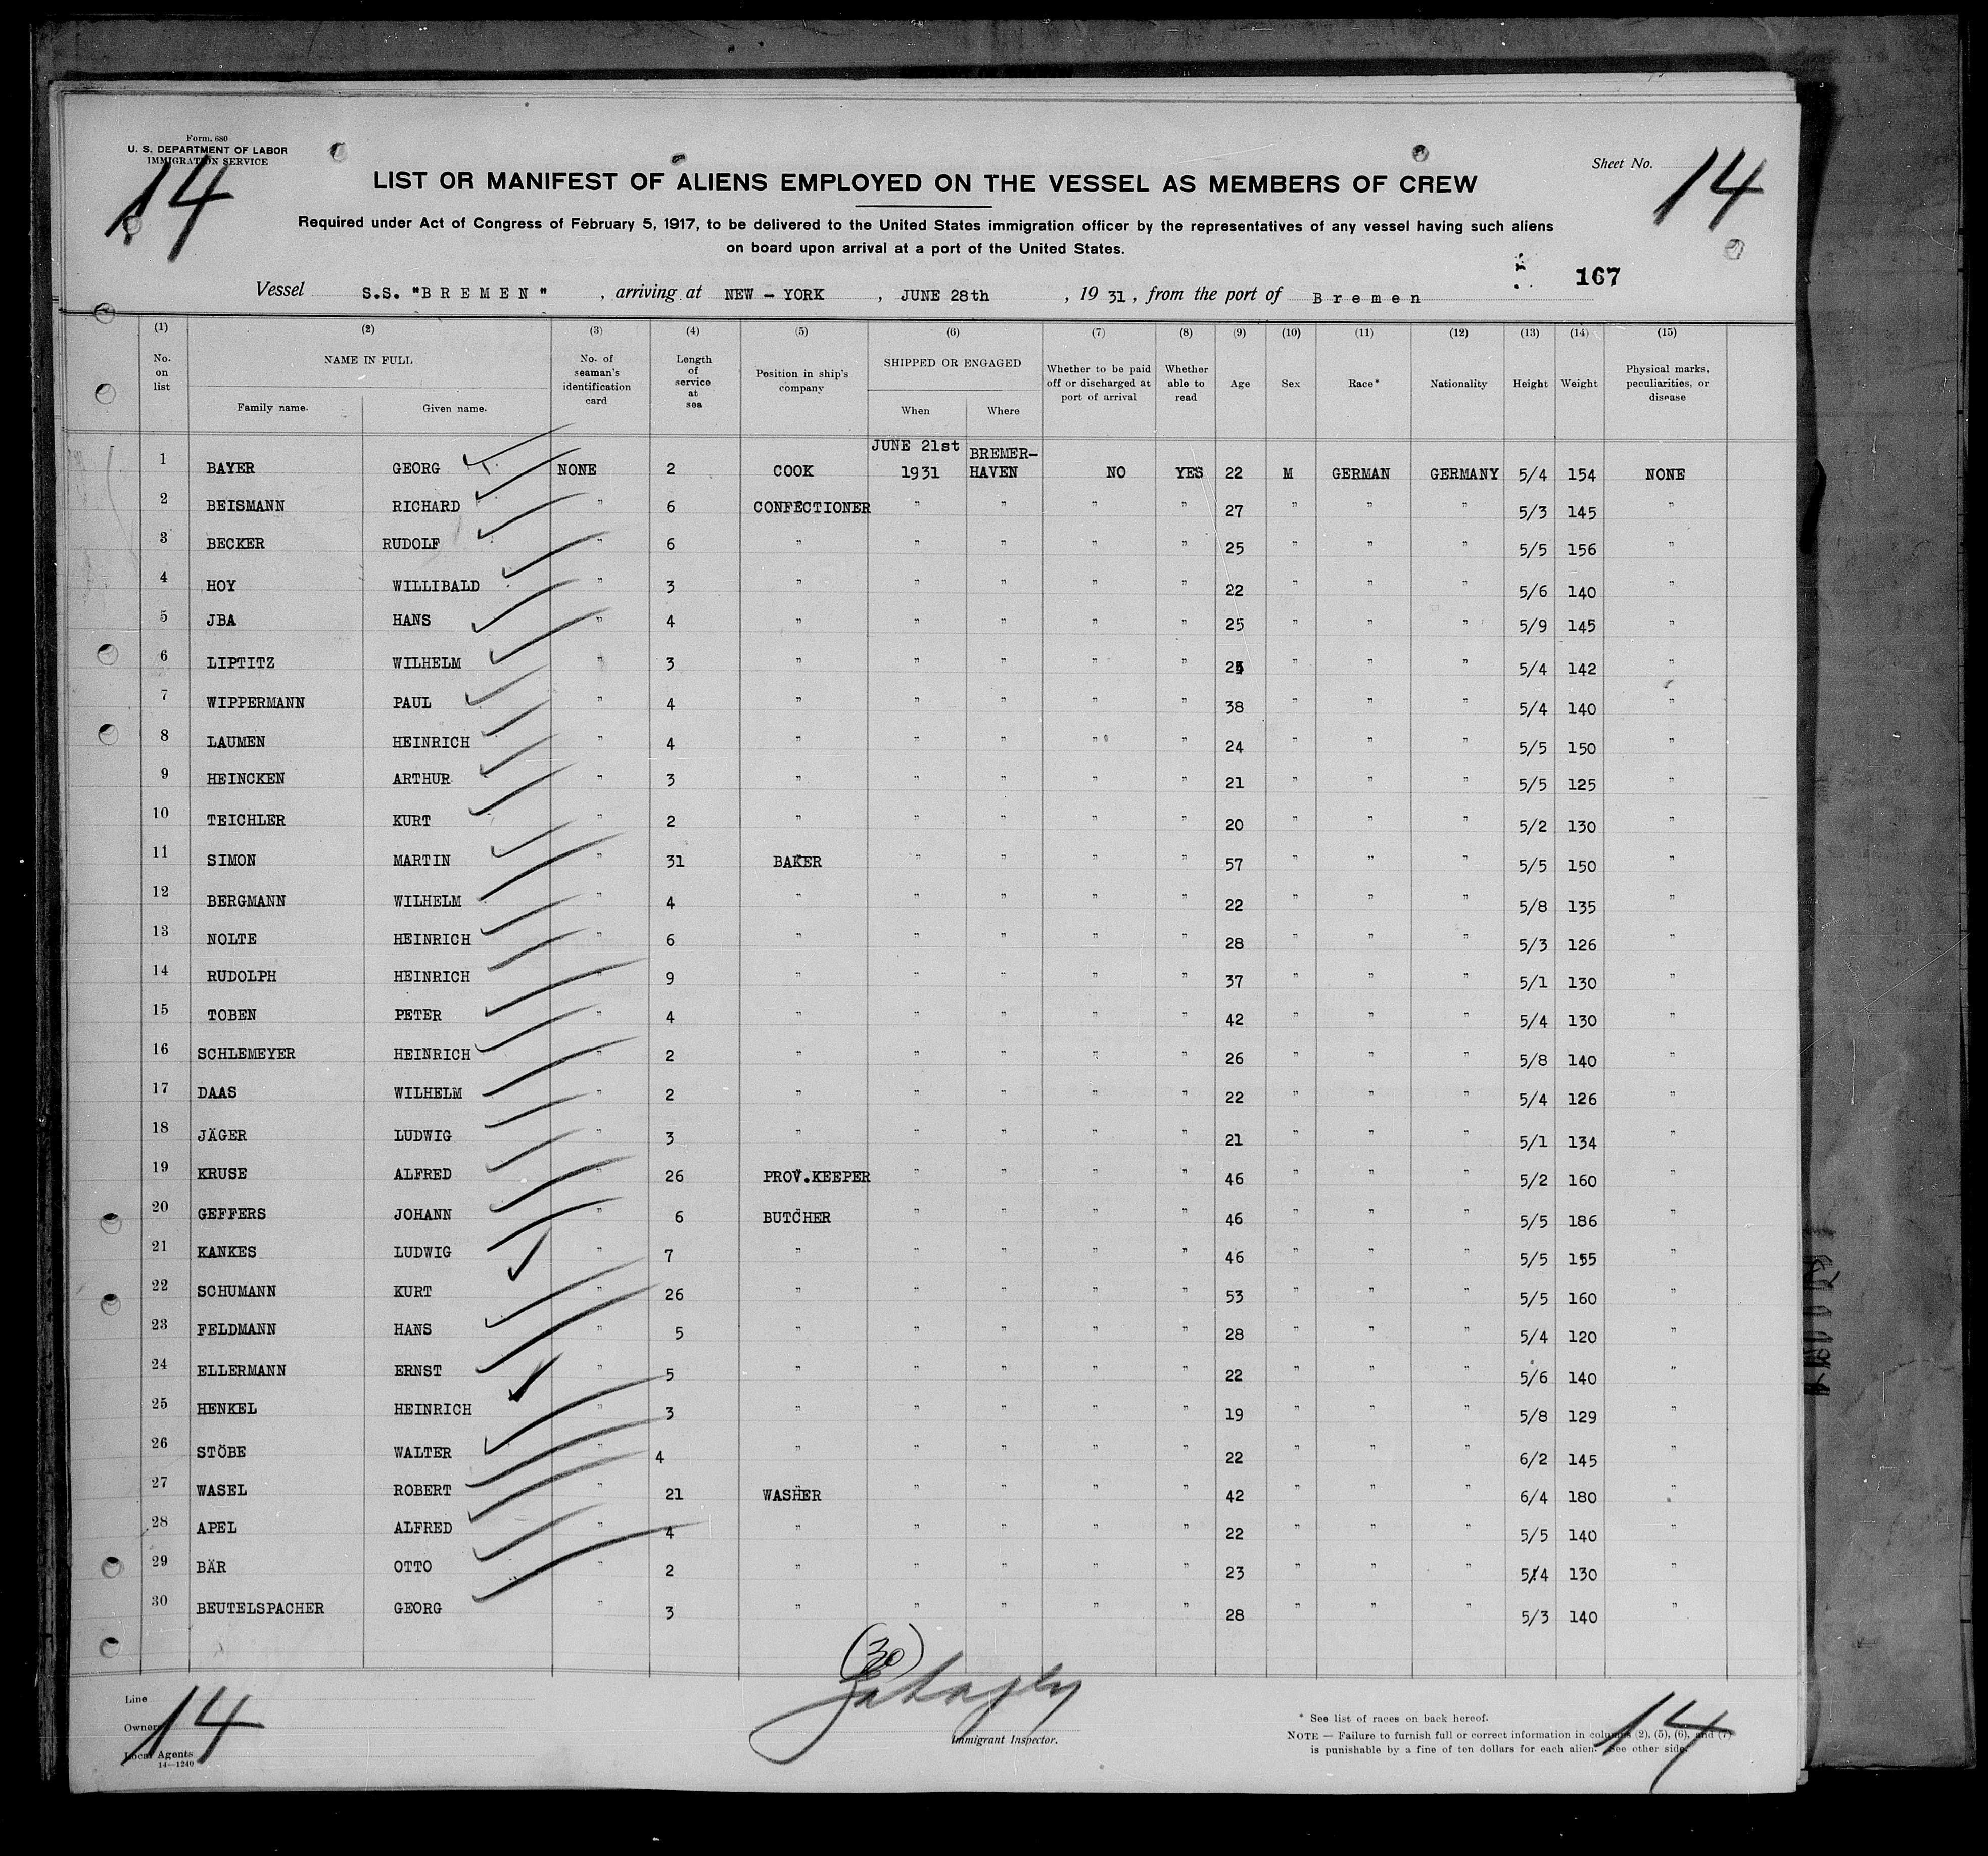 Form. 680
U. S. DEPARTMENT OF LABOR
IMMIGRATION SERVICE
14
Sheet No. 14
LIST OR MANIFEST OF ALIENS EMPLOYED ON THE VESSEL AS MEMBERS OF CREW
Required under Act of Congress of February 5, 1917, to be delivered to the United States immigration officer by the representatives of any vessel having such aliens
on board upon arrival at a port of the United States.
167
Vessel S.S. "BREMEN", arriving at NEW - YORK, JUNE 28th, 1931, from the port of Bremen
(1) (2) (3) (4) (5) (6) (7) (8) (9) (10) (11) (12) (13) (14) (15)
No. on list NAME IN FULL Family name. Given name. No. of seaman's identification card Length of service at sea Position in ship's company SHIPPED OR ENGAGED When Where Whether to be paid off or discharged at port of arrival Whether able to read Age Sex Race* Nationality Height Weight Physical marks, peculiarities, or disease
1 BAYER GEORG NONE 2 COOK JUNE 21st 1931 BREMER-HAVEN NO YES 22 M GERMAN GERMANY 5/4 154 NONE
2 BEISMANN RICHARD " 6 CONFECTIONER " " " " 27 " " " 5/3 145 "
3 BECKER RUDOLF " 6 " " " " " 25 " " " 5/5 156 "
4 HOY WILLIBALD " 3 " " " " " 22 " " " 5/6 140 "
5 JBA HANS " 4 " " " " " 25 " " " 5/9 145 "
6 LIPTITZ WILHELM " 3 " " " " " " " " 5/4 142 "
7 WIPPERMANN PAUL " 4 " " " " " 38 " " " 5/4 140 "
8 LAUMEN HEINRICH " 4 " " " " " 24 " " " 5/5 150 "
9 HEINCKEN ARTHUR " 3 " " " " " 21 " " " 5/5 125 "
10 TEICHLER KURT " 2 " " " " " 20 " " " 5/2 130 "
11 SIMON MARTIN " 31 BAKER " " " " 57 " " " 5/5 150 "
12 BERGMANN WILHELM " 4 " " " " " 22 " " " 5/8 135 "
13 NOLTE HEINRICH " 6 " " " " " 28 " " " 5/3 126 "
14 RUDOLPH HEINRICH " 9 " " " " " 37 " " " 5/1 130 "
15 TOBEN PETER " 4 " " " " " 42 " " " 5/4 130 "
16 SCHLEMEYER HEINRICH " 2 " " " " " 26 " " " 5/8 140 "
17 DAAS WILHELM " 2 " " " " " 22 " " " 5/4 126 "
18 JÄGER LUDWIG " 3 " " " " " 21 " " " 5/1 134 "
19 KRUSE ALFRED " 26 PROV.KEEPER " " " " 46 " " " 5/2 160 "
20 GEFFERS JOHANN " 6 BUTCHER " " " " 46 " " " 5/5 186 "
21 KANKES LUDWIG " 7 " " " " " 46 " " " 5/5 155 "
22 SCHUMANN KURT " 26 " " " " " 53 " " " 5/5 160 "
23 FELDMANN HANS " 5 " " " " " 28 " " " 5/4 120 "
24 ELLERMANN ERNST " 5 " " " " " 22 " " " 5/6 140 "
25 HENKEL HEINRICH " 3 " " " " " 19 " " " 5/8 129 "
26 STÖBE WALTER " 4 " " " " " 22 " " " 6/2 145 "
27 WASEL ROBERT " 21 WASHER " " " " 42 " " " 6/4 180 "
28 APEL ALFRED " 4 " " " " " 22 " " " 5/5 140 "
29 BÄR OTTO " 2 " " " " " 23 " " " 5/4 130 "
30 BEUTELSPACHER GEORG " 3 " " " " " 28 " " " 5/3 140 "
(30)
Line
Owner
Local Agents
14—1240
14
Immigrant Inspector.
* See list of races on back hereof.
NOTE — Failure to furnish full or correct information in columns (2), (5), (6), and (7)
is punishable by a fine of ten dollars for each alien. See other side.
14